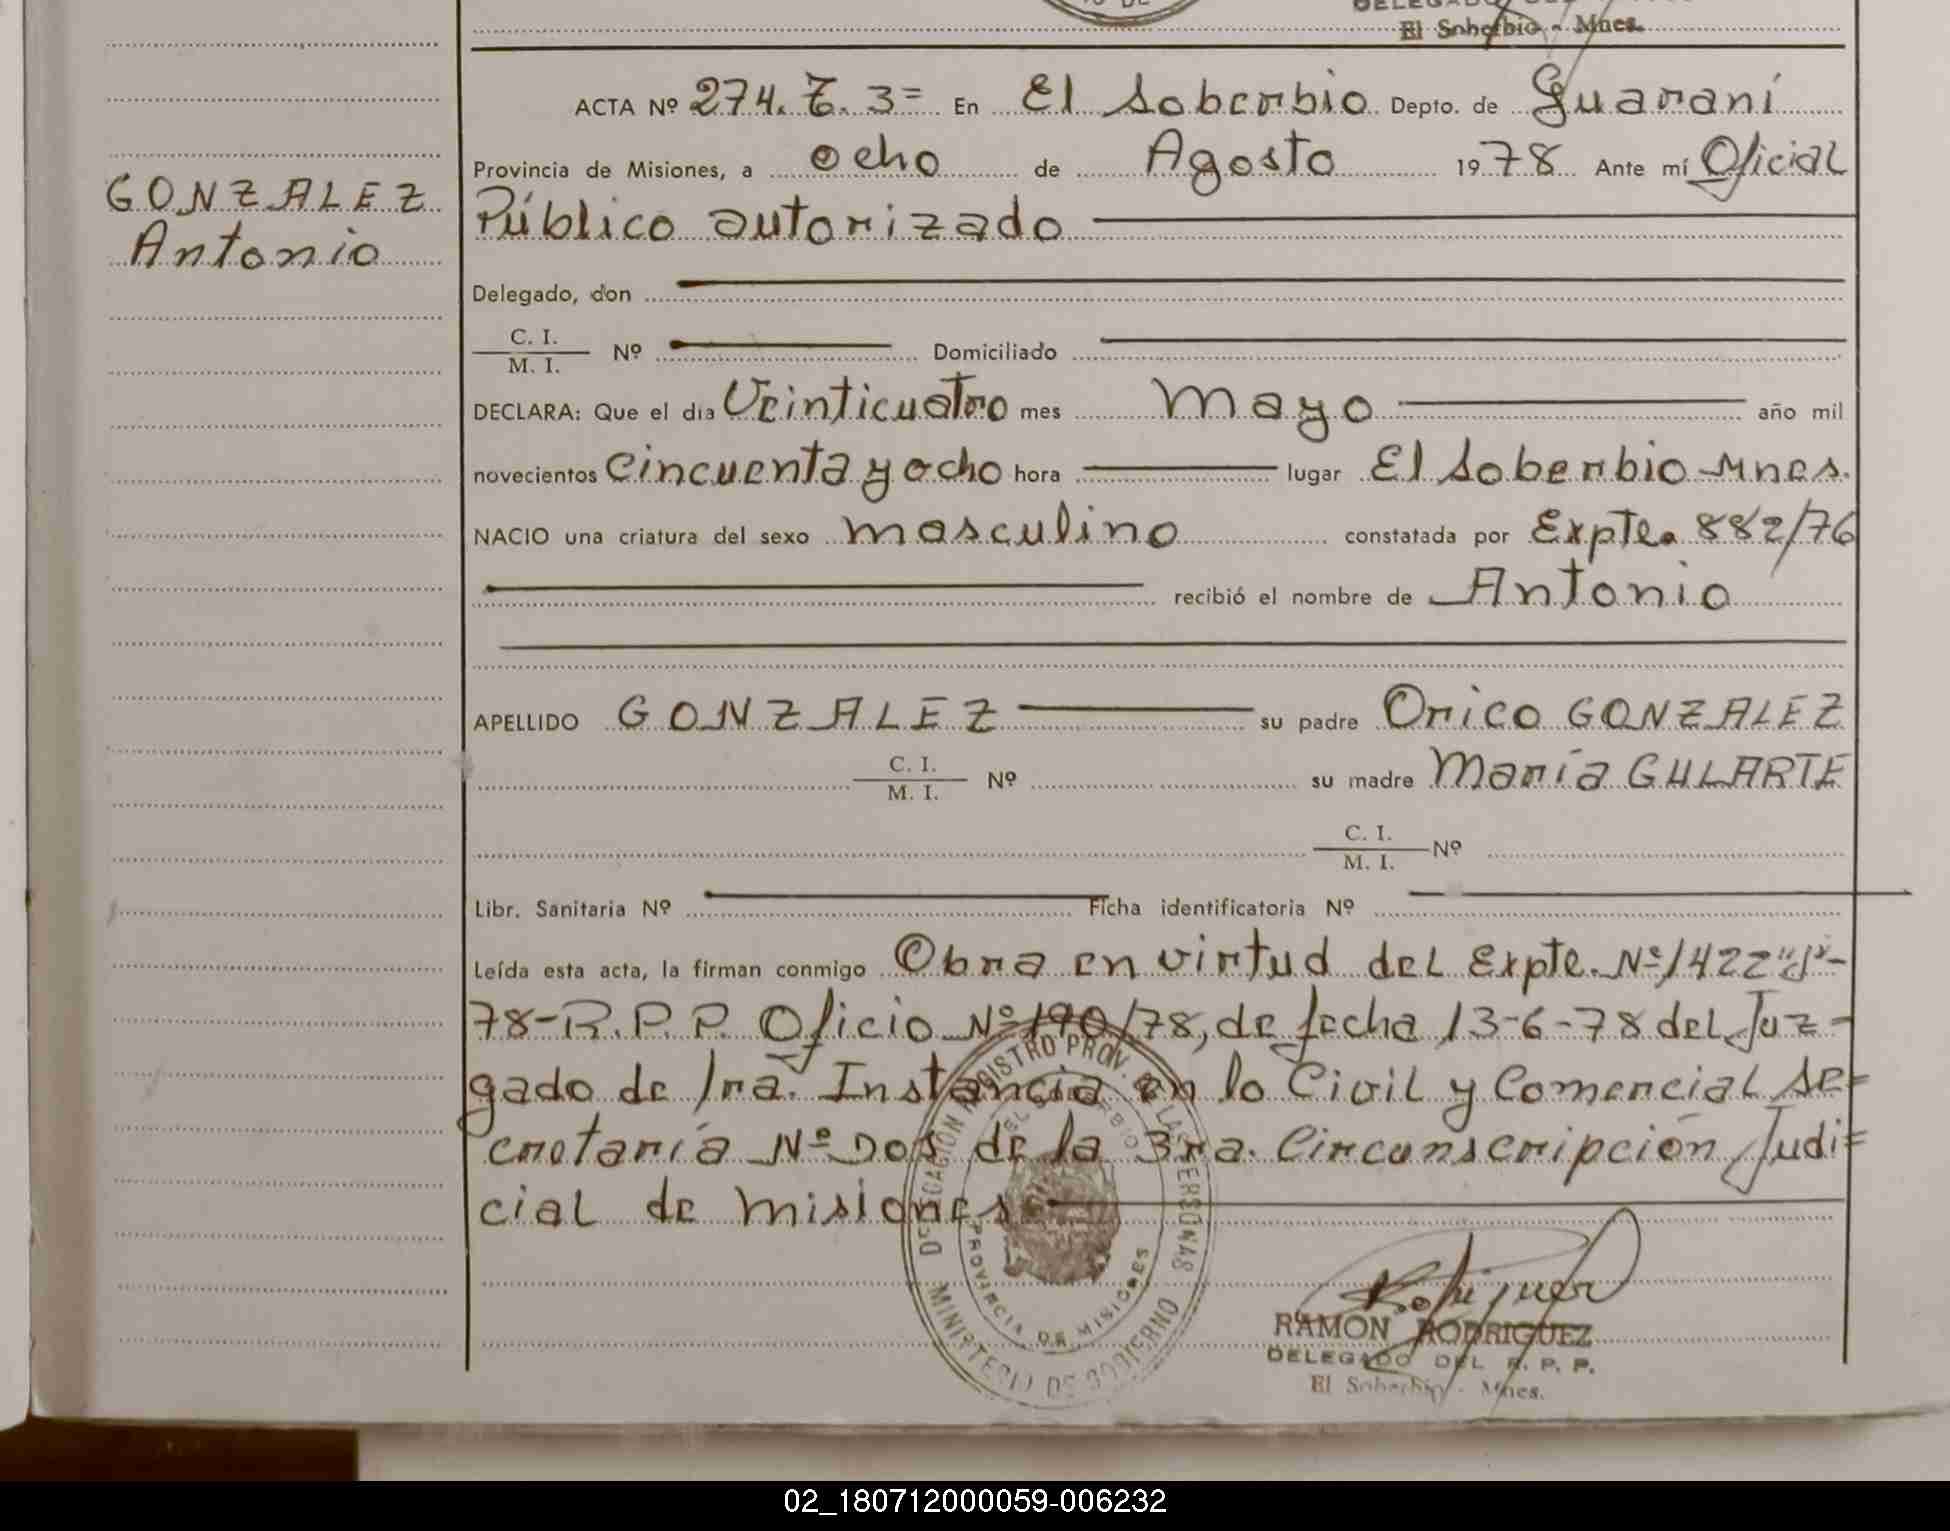 El Soberbio - Mnes.
ACTA Nº 274. T. 3= En El Soberbio Depto. de Guaraní
Provincia de Misiones, a ocho de Agosto 1978 Ante mí Oficial
GONZALEZ
Público autorizado
Antonio
Delegado, don
C. I.
M. I.
Nº Domiciliado
DECLARA: Que el día Veinticuatro mes Mayo año mil
novecientos cincuenta y ocho hora lugar El Soberbio Mnes.
NACIO una criatura del sexo masculino constatada por Expte. 882/76
recibió el nombre de Antonio
APELLIDO GONZALEZ su padre Orico GONZALEZ
C. I.
M. I.
Nº su madre María GULARTE
C. I.
M. I.
Nº
Libr. Sanitaria Nº Ficha identificatoria Nº
Leída esta acta, la firman conmigo Obra en virtud del Expte. Nº 1422
78-R.P.P. Oficio Nº 190/78, de fecha 13-6-78 del Juz-
gado de 1ra. Instancia en lo Civil y Comercial Se=
cretaría Nº Dos de la 3ra. Circunscripción Judi=
cial de Misiones
REGISTRO PROV. DE LAS PERSONAS
PROVINCIA DE MISIONES
MINISTERIO DE GOBIERNO
RAMON RODRIGUEZ
DELEGADO DEL R. P. P.
El Soberbio - Mnes.
02_180712000059-006232